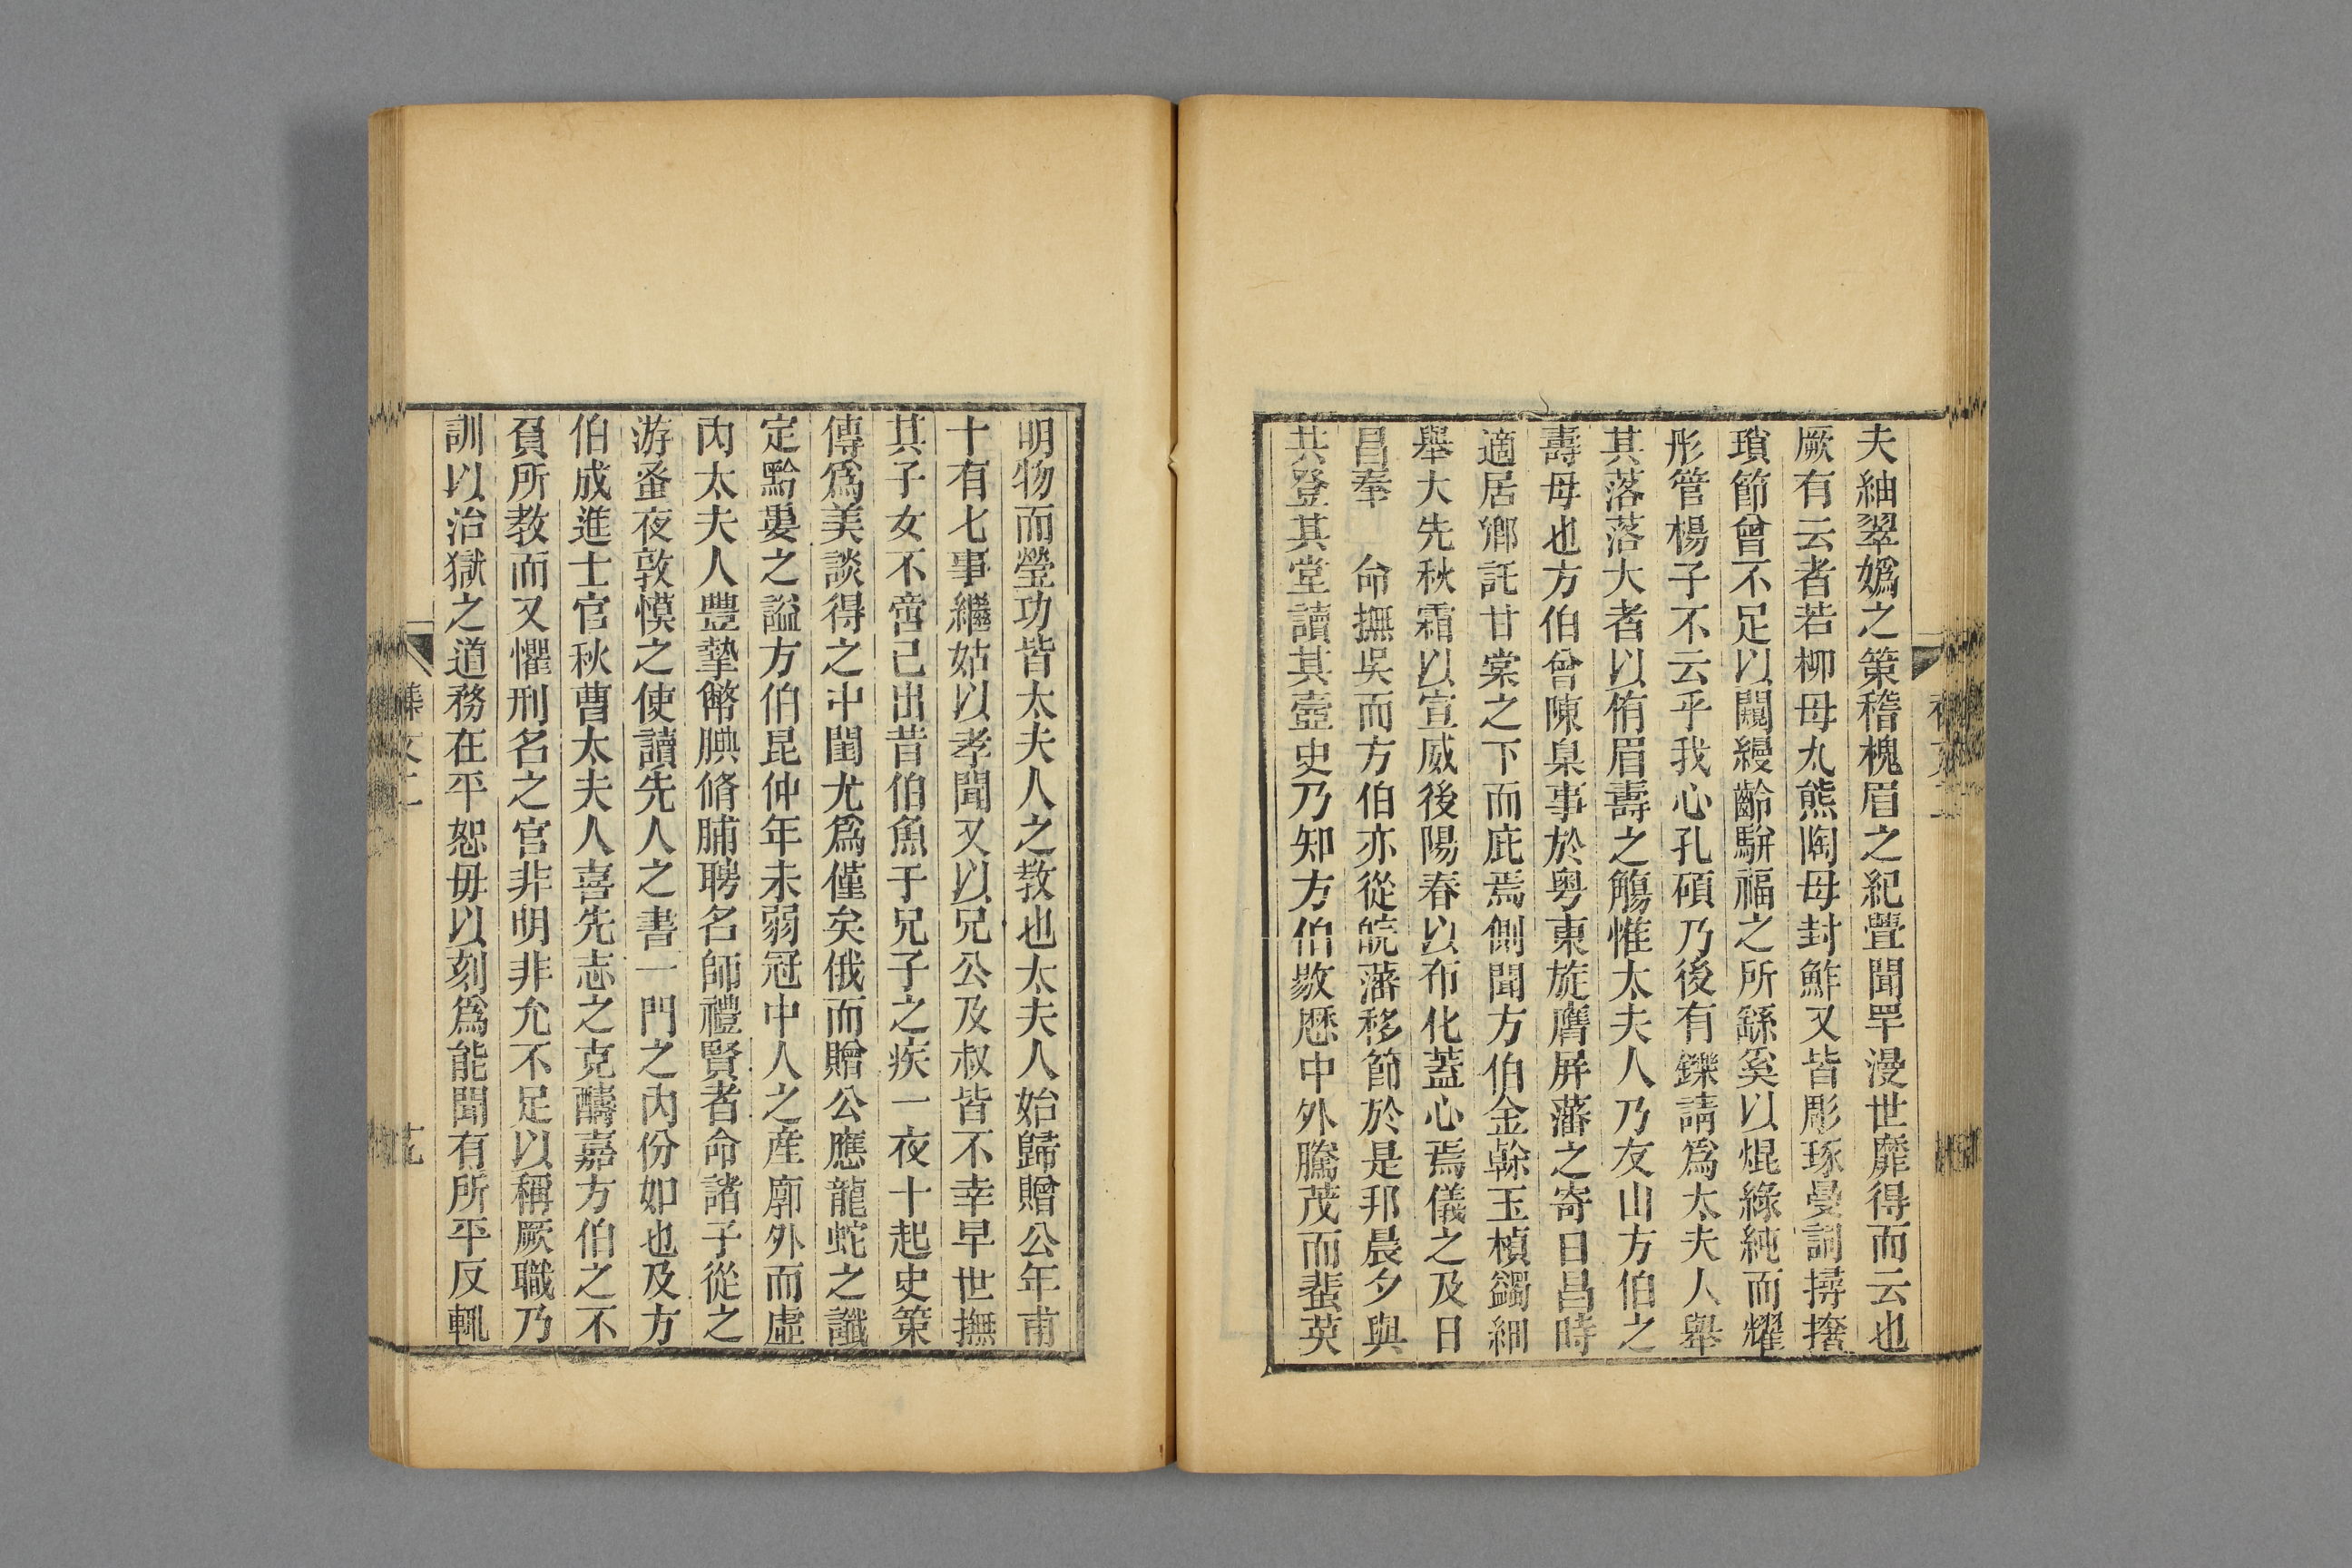 夫紬翠嬀之策稽槐眉之紀疊聞罕漫世靡得而云也
厥有云者若柳母丸熊陶母封鮓又皆彫琢曼詞撏撦
瑣節曾不足以闚縵齡駢福之所繇奚以焜綠純而耀
彤管楊子不云乎我心孔碩乃後有鑠請爲太夫人舉
其落落大者以侑眉壽之觴惟太夫人乃友山方伯之
壽母也方伯曾陳臬事於粤東旋膺屏藩之寄日昌時
適居鄉託甘棠之下而庇焉側聞方伯金榦玉楨鐲細
舉大先秋霜以宣威後陽春以布化蓋心焉儀之及日
昌奉　命撫吳而方伯亦從皖藩移節於是邦晨夕與
共登其堂讀其壼史乃知方伯敭歷中外騰茂而蜚英
明物而瑩功皆太夫人之教也太夫人始歸贈公年甫
十有七事繼姑以孝聞又以兄公及叔皆不幸早世撫
其子女不啻己出昔伯魚于兄子之疾一夜十起史策
傳爲美談得之中閨尤爲僅矣俄而贈公應龍蛇之讖
定黔婁之謚方伯昆仲年未弱冠中人之産廓外而虛
內太夫人豐摯幣腆脩脯聘名師禮賢者命諸子從之
游蚤夜敦慔之使讀先人之書一門之內份如也及方
伯成進士官秋曹太夫人喜先志之克醻嘉方伯之不
負所教而又懼刑名之官非明非允不足以稱厥職乃
訓以治獄之道務在平恕毋以刻爲能聞有所平反輒